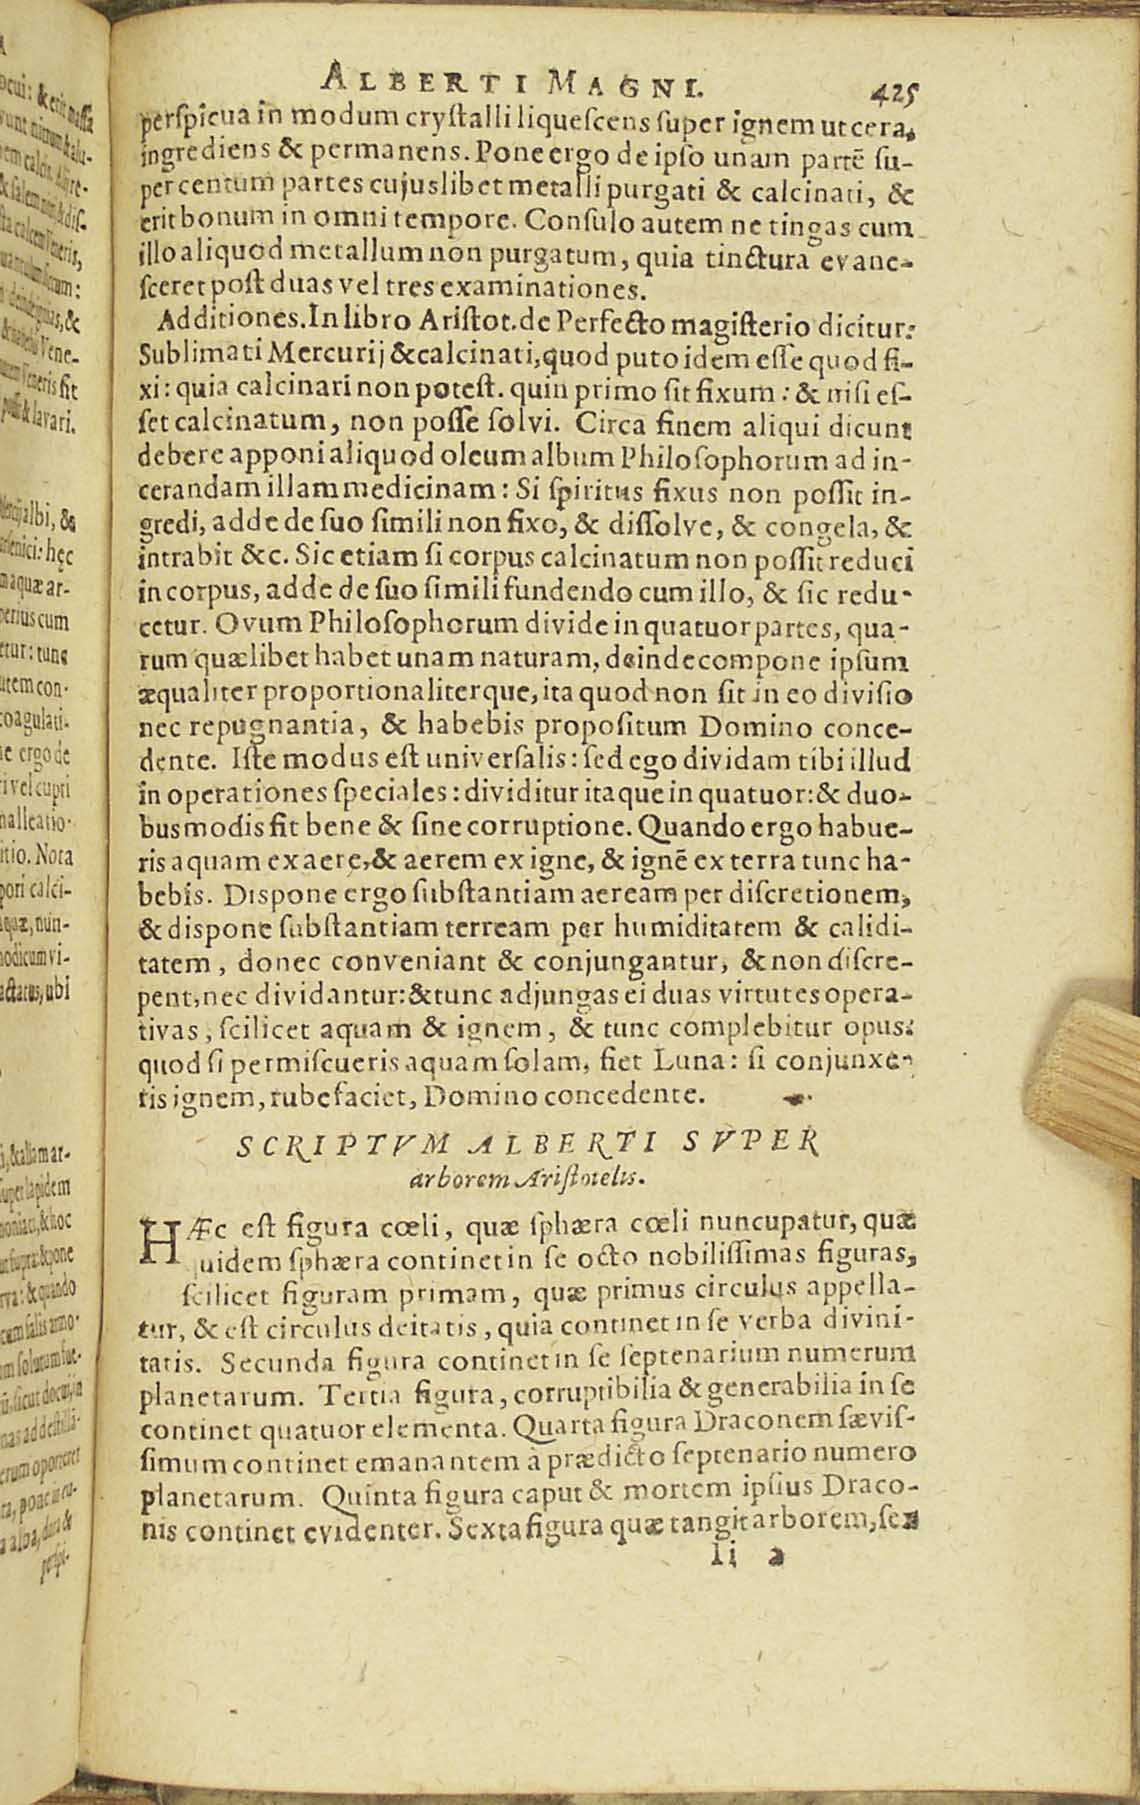 ALBERTI MAGNI. 425
perſpicua in modum cryſtalli liqueſcens ſuper ignem ut cera,
ingrediens & permanens. Pone ergo de ipſo unam partẽ ſu-
per centum partes cujuslibet metalli purgati & calcinati, &
erit bonum in omni tempore. Conſulo autem ne tingas cum
illo aliquod metallum non purgatum, quia tinctura evane-
ſceret poſt duas vel tres examinationes.
Additiones. In libro Ariſtot. de Perfecto magiſterio dicitur:
Sublimati Mercurij & calcinati, quod puto idem eſſe quod fi-
xi: quia calcinari non poteſt. quin primo ſit fixum: & niſi eſ-
ſet calcinatum, non poſſe ſolvi. Circa finem aliqui dicunt
debere apponi aliquod oleum album Philoſophorum ad in-
cerandam illam medicinam: Si ſpiritus fixus non poſſit in-
gredi, adde de ſuo ſimili non fixo, & diſſolve, & congela, &
intrabit &c. Sic etiam ſi corpus calcinatum non poſſit reduci
in corpus, adde de ſuo ſimili fundendo cum illo, & ſic redu-
cetur. Ovum Philoſophorum divide in quatuor partes, qua-
rum quælibet habet unam naturam, deinde compone ipſum
æqualiter proportionaliterque, ita quod non ſit in eo diviſio
nec repugnantia, & habebis propoſitum Domino conce-
dente. Iſte modus eſt univerſalis: ſed ego dividam tibi illud
in operationes ſpeciales: dividitur itaque in quatuor: & duo-
bus modis fit bene & ſine corruptione. Quando ergo habue-
ris aquam ex aere, & aerem ex igne, & ignẽ ex terra tunc ha-
bebis. Diſpone ergo ſubſtantiam aeream per diſcretionem,
& diſpone ſubſtantiam terream per humiditatem & calidi-
tatem, donec conveniant & conjungantur, & non diſcre-
pent, nec dividantur: & tunc adjungas ei duas virtutes opera-
tivas, ſcilicet aquam & ignem, & tunc complebitur opus:
quod ſi permiſcueris aquam ſolam, fiet Luna: ſi conjunxe-
ris ignem, rubefaciet, Domino concedente.
SCRIPTVM ALBERTI SVPER
arborem Ariſtotelis.
HÆc eſt figura cœli, quæ ſphæra cœli nuncupatur, quæ
quidem ſphæra continet in ſe octo nobiliſſimas figuras,
ſcilicet figuram primam, quæ primus circulus appella-
tur, & eſt circulus deitatis, quia continet in ſe verba divini-
tatis. Secunda figura continet in ſe ſeptenarium numerum
planetarum. Tertia figura, corruptibilia & generabilia in ſe
continet quatuor elementa. Quarta figura Draconem ſæviſ-
ſimum continet emanantem à prædicto ſeptenario numero
planetarum. Quinta figura caput & mortem ipſius Draco-
nis continet evidenter. Sexta figura quæ tangit arborem, ſe-
Ii a